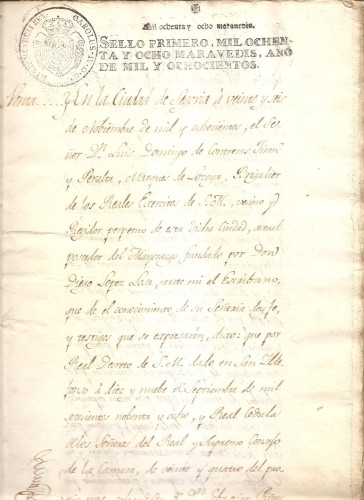 CAROLUS IV D. G.
Mil ochenta y ocho maravedis.
SELLO PRIMERO, MIL OCHEN-
TA Y OCHO MARAVEDIS, AÑO
DE MIL Y OCHOCIENTOS.
En la Ciudad de Segovia à veinte y seis
de Nobiembre de mil y ochocientos, el Se-
ñor Dn. Luis Domingo de Contreras Giron
y Peralta, Marques de Lozoya, Brigadier
de los Reales Exercitos de S. M., vecino y
Regidor perpetuo de esta dicha Ciudad, actual
posedor del Mayorazgo, fundado por Don
Diego Lopez Losa, ante mi el Escribano,
que de el conocimiento de su Señoria doy fe,
y testigos que se expresarán, dixo: que por
Real Decreto de S. M. dado en San Ylde-
fonso à diez y nuebe de Septiembre de mil
setecientos nobenta y ocho, y Real Cedula
de los Señores del Real y Supremo Consejo
de la Camara, de veinte y quatro del pro-